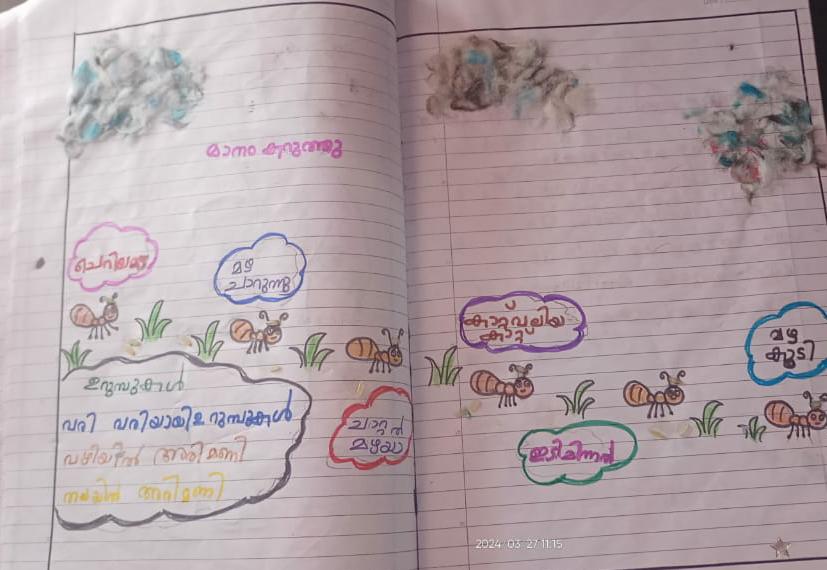 മാനം കറുത്തു
ചെറിയമഴ
മഴ
ചാറുന്നു
ഉറുമ്പുകൾ
വരി വരിയായി ഉറുമ്പുകൾ
വഴിയിൽ അരിമണി
അരിമണി
ചാറ്റൽ
മഴയാ
കാറ്റ് വലിയ
കാറ്റ്
മഴ
കൂടി
ഇടിമിന്നൽ
2024-03-27 11:15